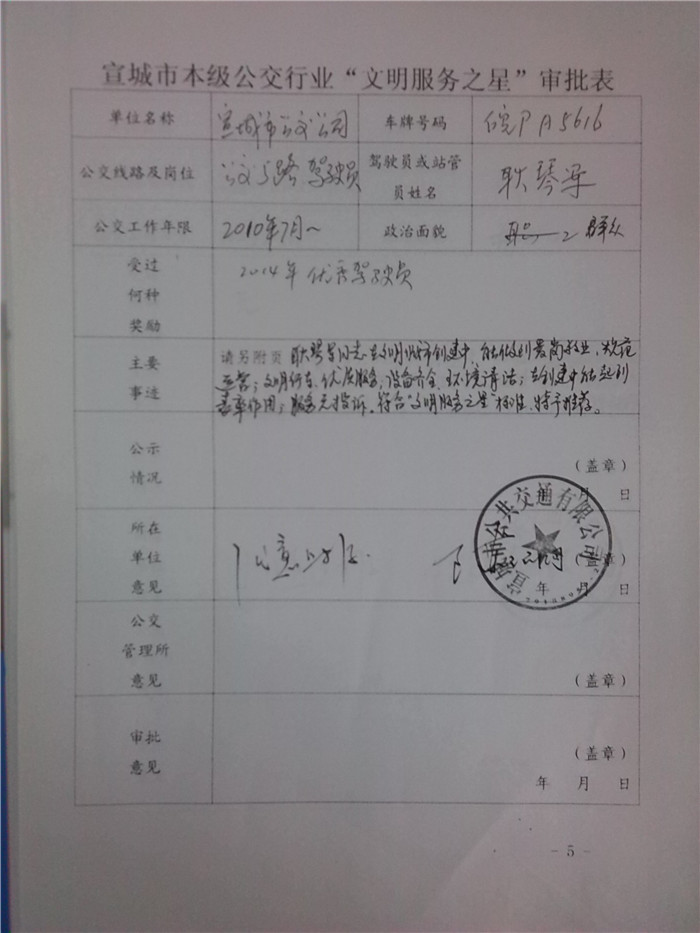 宣城市本级公交行业“文明服务之星”审批表
单位名称 宣城市公交公司 车牌号码 皖P A5616
公交线路及岗位 公交5路驾驶员 驾驶员或站管员姓名 耿琴
公交工作年限 2010年7月~ 政治面貌 群众
受过何种奖励 2014年优秀驾驶员
主要事迹 请另附页 耿琴 同志在文明城市创建中,能做到爱岗敬业,规范
运营;文明行车、优质服务,设备齐全、环境清洁;在创建中能起到
表率作用;服务无投诉。符合“文明服务之星”标准,特予推荐。
公示情况 (盖章)
月 日
所在单位意见 同意 (盖章)
年 月 日
宣城市公共交通有限公司
公交管理所意见 (盖章)
审批意见 (盖章)
年 月 日
- 5 -